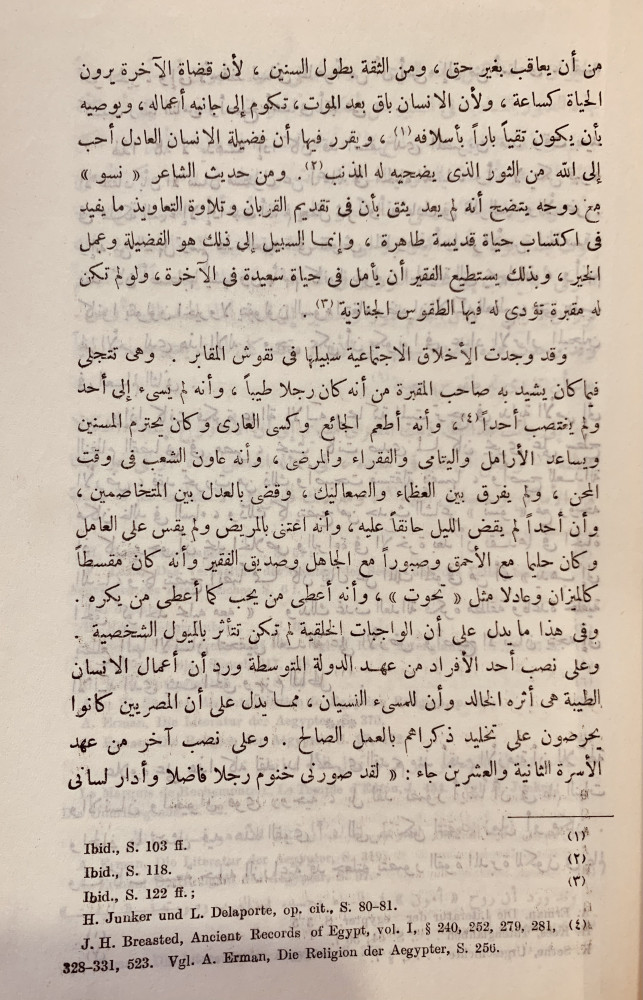 من أن يعاقب بغير حق ، ومن الثقة بطول السنين ، لأن قضاة الآخرة يرون
الحياة كساعة ، ولأن الانسان باق بعد الموت ، تكوم إلى جانبه أعماله ، ويوصيه
بأن يكون تقياً باراً بأسلافه (١) ، ويقرر فيها أن فضيلة الانسان العادل أحب
إلى الله من الثور الذى يضحيه له المذنب (٢) . ومن حديث الشاعر « نسو »
مع روحه يتضح أنه لم يعد يثق بأن فى تقديم القربان وتلاوة التعاويذ ما يفيد
فى اكتساب حياة قديسة طاهرة ، وإنما السبيل إلى ذلك هو الفضيلة وعمل
الخير ، وبذلك يستطيع الفقير أن يأمل فى حياة سعيدة فى الآخرة ، ولو لم تكن
له مقبرة تؤدى له فيها الطقوس الجنازية (٣) .
وقد وجدت الأخلاق الاجتماعية سبيلها فى نقوش المقابر . وهى تتجلى
فيما كان يشيد به صاحب المقبرة من أنه كان رجلا طيباً ، وأنه لم يسىء إلى أحد
ولم يغتصب أحداً (٤) ، وأنه أطعم الجائع وكسى العارى وكان يحترم المسنين
ويساعد الأرامل واليتامى والفقراء والمرضى ، وأنه عاون الشعب فى وقت
المحن ، ولم يفرق بين العظماء والصعاليك ، وقضى بالعدل بين المتخاصمين ،
وأن أحداً لم يقض الليل حانقاً عليه ، وأنه اعتنى بالمريض ولم يقس على العامل
وكان حليما مع الأحمق وصبوراً مع الجاهل وصديق الفقير وأنه كان مقسطاً
كالميزان وعادلا مثل « تحوت » ، وأنه أعطى من يحب كما أعطى من يكره .
وفى هذا ما يدل على أن الواجبات الخلقية لم تكن تتأثر بالميول الشخصية .
وعلى نصب أحد الأفراد من عهد الدولة المتوسطة ورد أن أعمال الانسان
الطيبة هى أثره الخالد وأن للمسىء النسيان ، مما يدل على أن المصريين كانوا
يحرصون على تخليد ذكراهم بالعمل الصالح . وعلى نصب آخر من عهد
الأسرة الثانية والعشرين جاء : « لقد صورنى خنوم رجلا فاضلا وأدار لسانى
Ibid., S. 103 ff. (١)
Ibid., S. 118. (٢)
Ibid., S. 122 ff. ; (٣)
H. Junker und L. Delaporte, op. cit., S. 80-81.
J. H. Breasted, Ancient Records of Egypt, vol. I, § 240, 252, 279, 281, (٤)
328-331, 523. Vgl. A. Erman, Die Religion der Aegypter, S. 256.